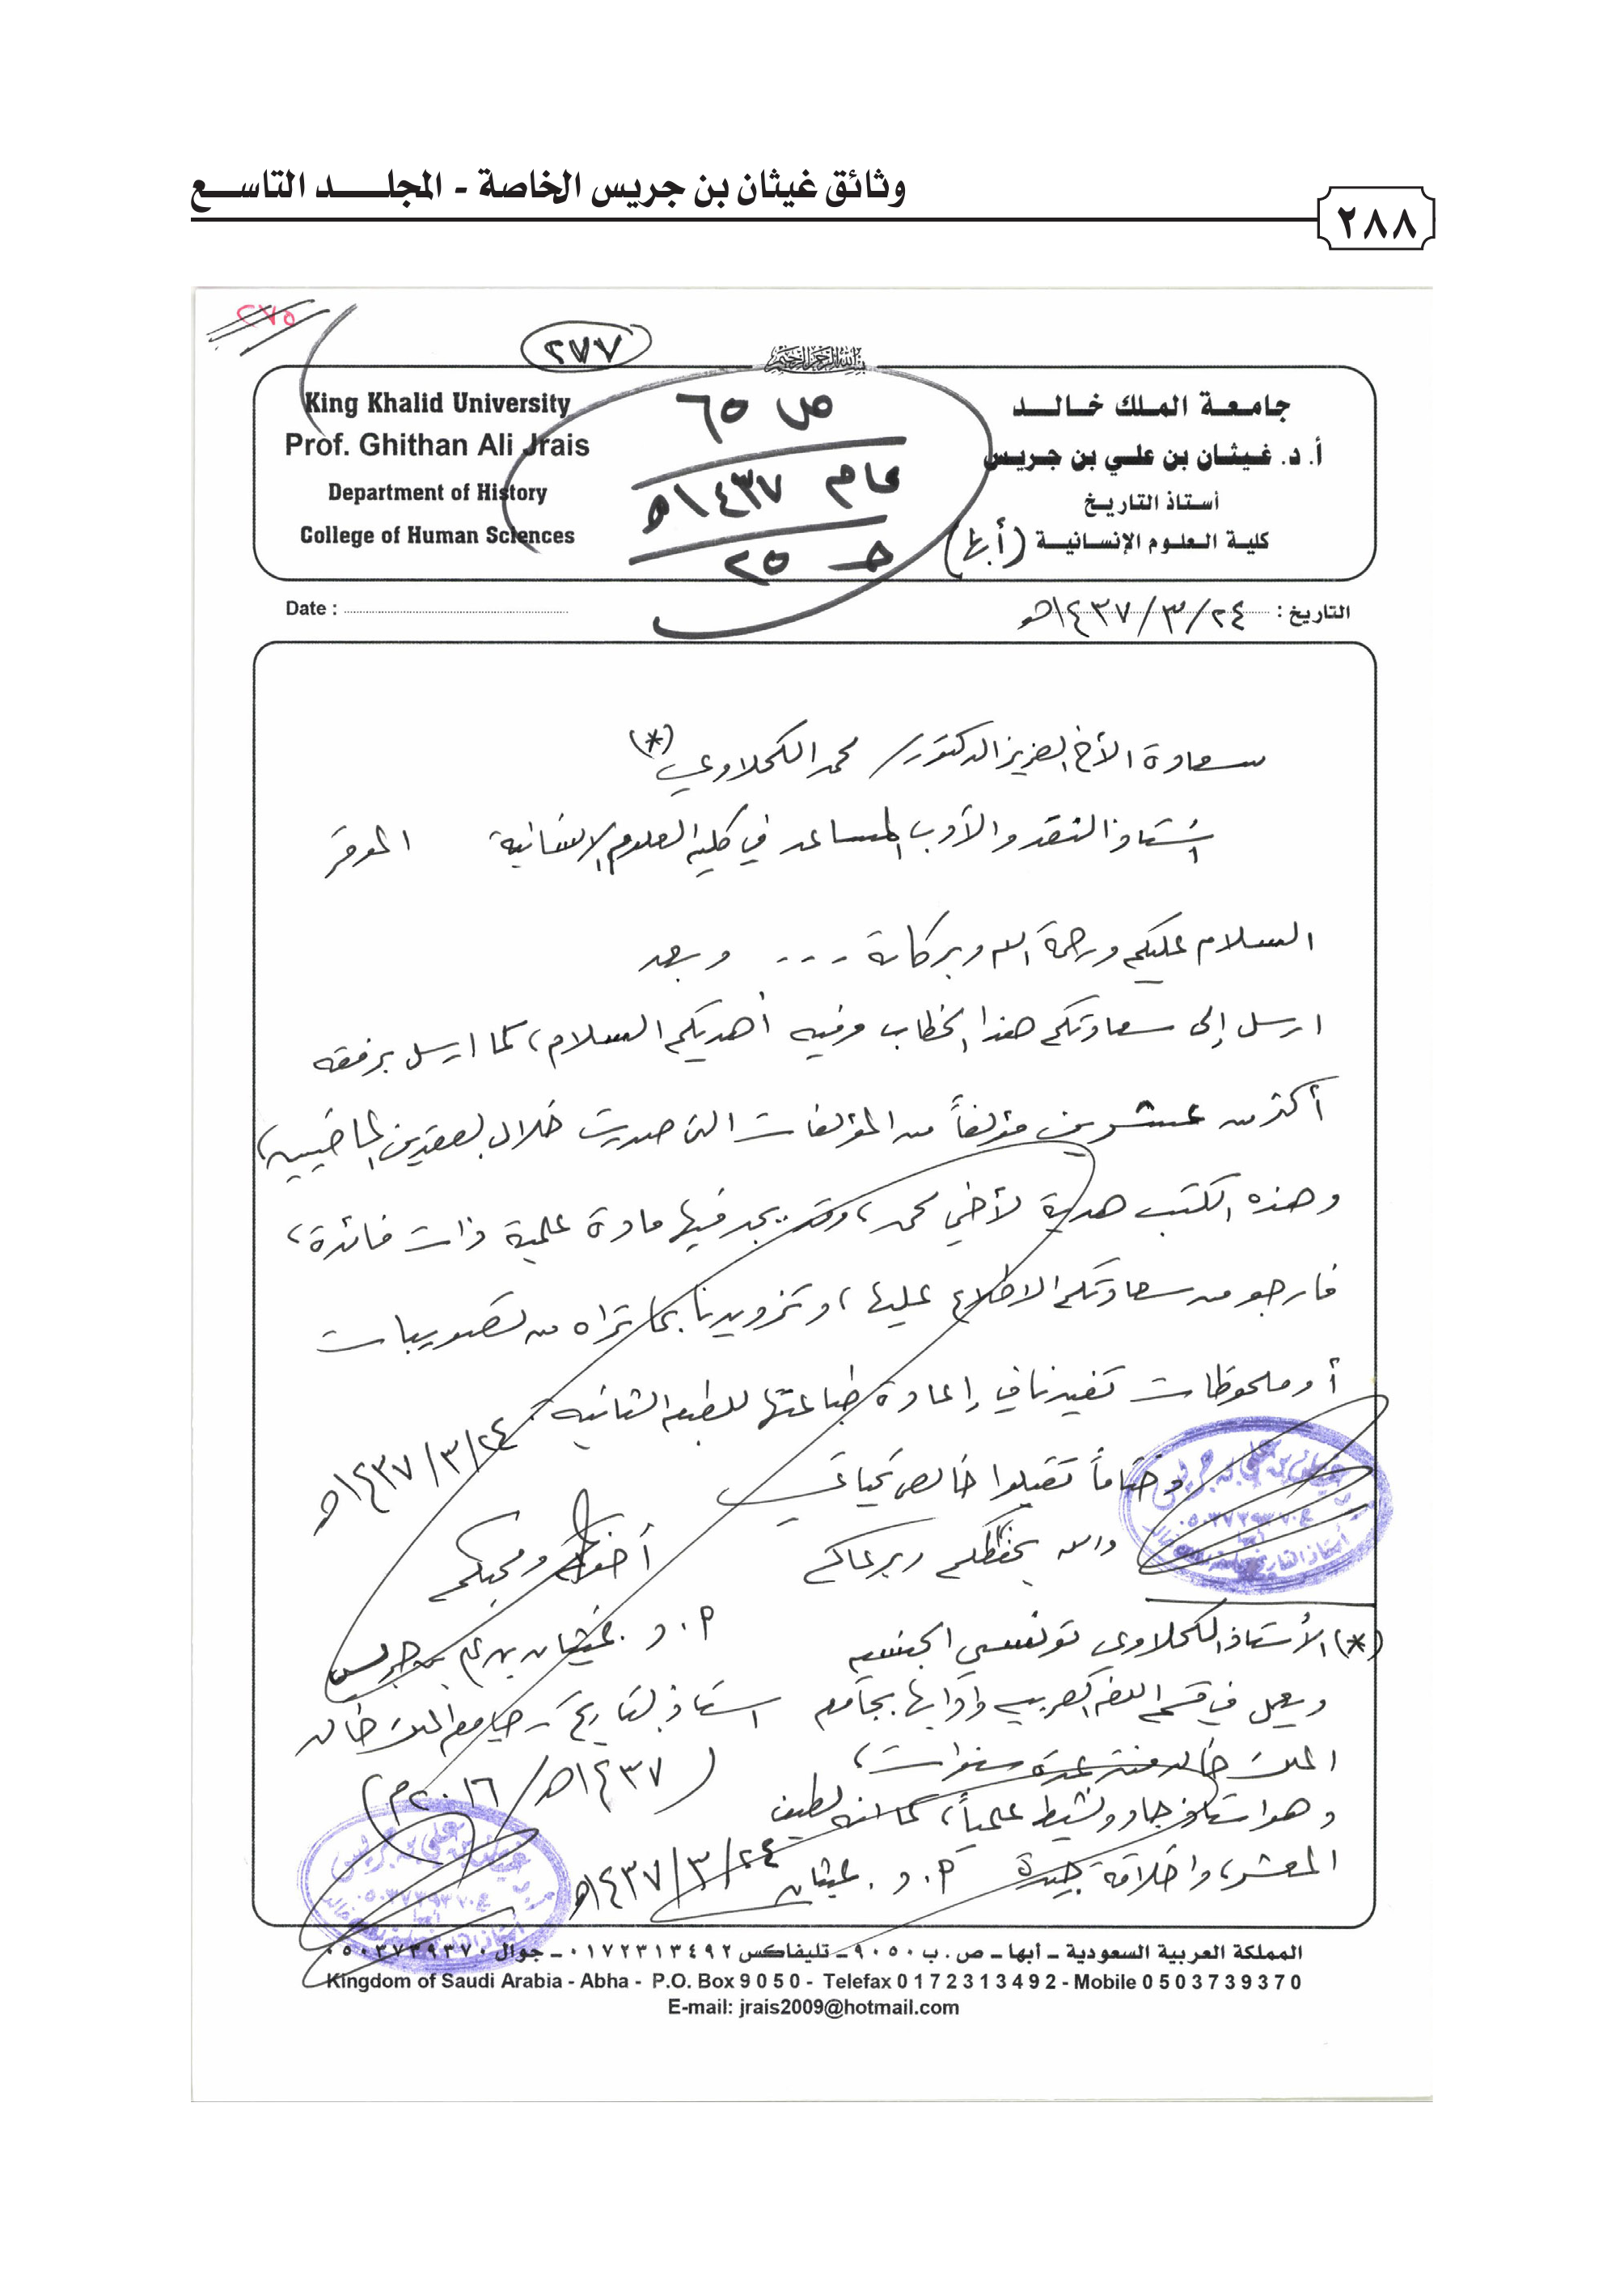 وثائق غيثان بن جريس الخاصة - المجلد التاسع
٢٨٨
٢٧٥
٢٧٧
بسم الله الرحمن الرحيم
جامعة الملك خالد
أ. د. غيثان بن علي بن جريس
أستاذ التاريخ
كلية العلوم الإنسانية (أبها)
ص ٦٥
عام ١٤٣٧هـ
حـ ٢٥
King Khalid University
Prof. Ghithan Ali Jrais
Department of History
College of Human Sciences
التاريخ : ٢٤/٣/١٤٣٧هـ
Date :
سعادة الأخ العزيز الدكتور/ محمد الكحلاوي (*)
أستاذ النقد والأدب المساعد في كلية العلوم الإنسانية الموقر
السلام عليكم ورحمة الله وبركاته ... وبعد
ارسل إلى سعادتكم هذا الخطاب وفيه أهديكم السلام، كما ارسل برفقه
أكثر من عشرين مؤلفاً من المؤلفات التي صدرت خلال العقدين الماضيين،
وهذه الكتب هدية لأخي محمد، وقد يجد فيها مادة علمية ذات فائدة،
فارجو من سعادتكم الاطلاع عليها، وتزويدنا بما تراه من تصويبات
أو ملحوظات تفيدنا في إعادة طباعتها للطبعة الثانية.
٢٤/٣/١٤٣٧هـ
وختاماً تقبلوا خالص تحياتي
والله يحفظكم ويرعاكم
أخوكم ومحبكم
أ. د. غيثان بن علي بن جريس
استاذ التاريخ - جامعة الملك خالد
(١٤٣٧هـ/٢٠١٦م)
(*) الأستاذ الكحلاوي تونسي الجنسية
ويعمل في قسم اللغة العربية وآدابها بجامعة
الملك خالد منذ عدة سنوات،
وهو استاذ جاد ونشيط علمياً، كما انه لطيف
المعشر، واخلاقه جيدة أ. د. غيثان ٢٤/٣/١٤٣٧هـ
المملكة العربية السعودية – أبها – ص . ب ٩٠٥٠ – تليفاكس ٠١٧٢٣١٣٤٩٢ – جوال ٠٥٠٣٧٣٩٣٧٠
Kingdom of Saudi Arabia - Abha - P.O. Box 9050 - Telefax 0172313492 - Mobile 0503739370
E-mail: jrais2009@hotmail.com